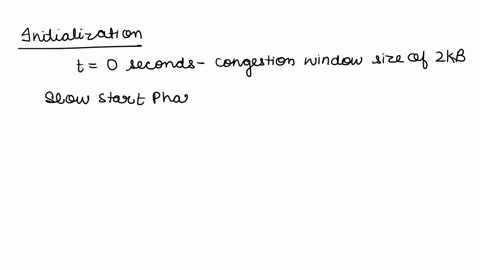 Initialization
t = 0 seconds - congestion window size of 2kB
Slow start Pha